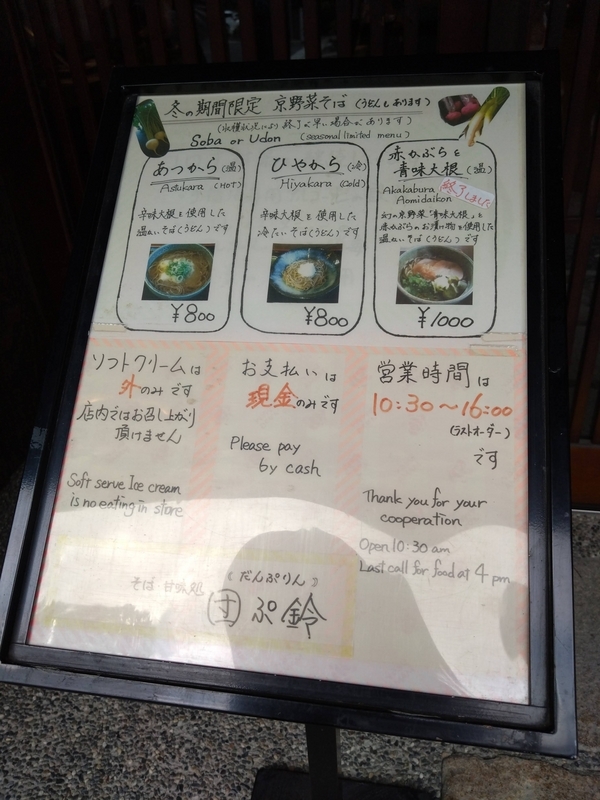 冬の期間限定 京野菜そば (うどんもあります)
(収穫状況により終了が早い場合があります)
Soba or Udon (seasonal limited menu)
あつから (温)
Astukara (HOT)
辛味大根を使用した
温かいそば(うどん)です
¥800
ひやから (冷)
Hiyakara (Cold)
辛味大根を使用した
冷たいそば(うどん)です
¥800
赤かぶらと
青味大根 (温)
Akakabura
Aomidaikon
終了しました
幻の京野菜「青味大根」と
赤かぶらのお漬け物を使用した
温かいそば(うどん)です
¥1000
ソフトクリームは
外のみです
店内ではお召し上がり
頂けません
Soft serve Ice cream
is no eating in store
お支払いは
現金のみです
Please pay
by cash
営業時間は
10:30~16:00
(ラストオーダー)
です
Thank you for your
cooperation
Open 10:30 am
Last call for food at 4 pm
そば 甘味処
(だんぷりん)
団ぷ鈴